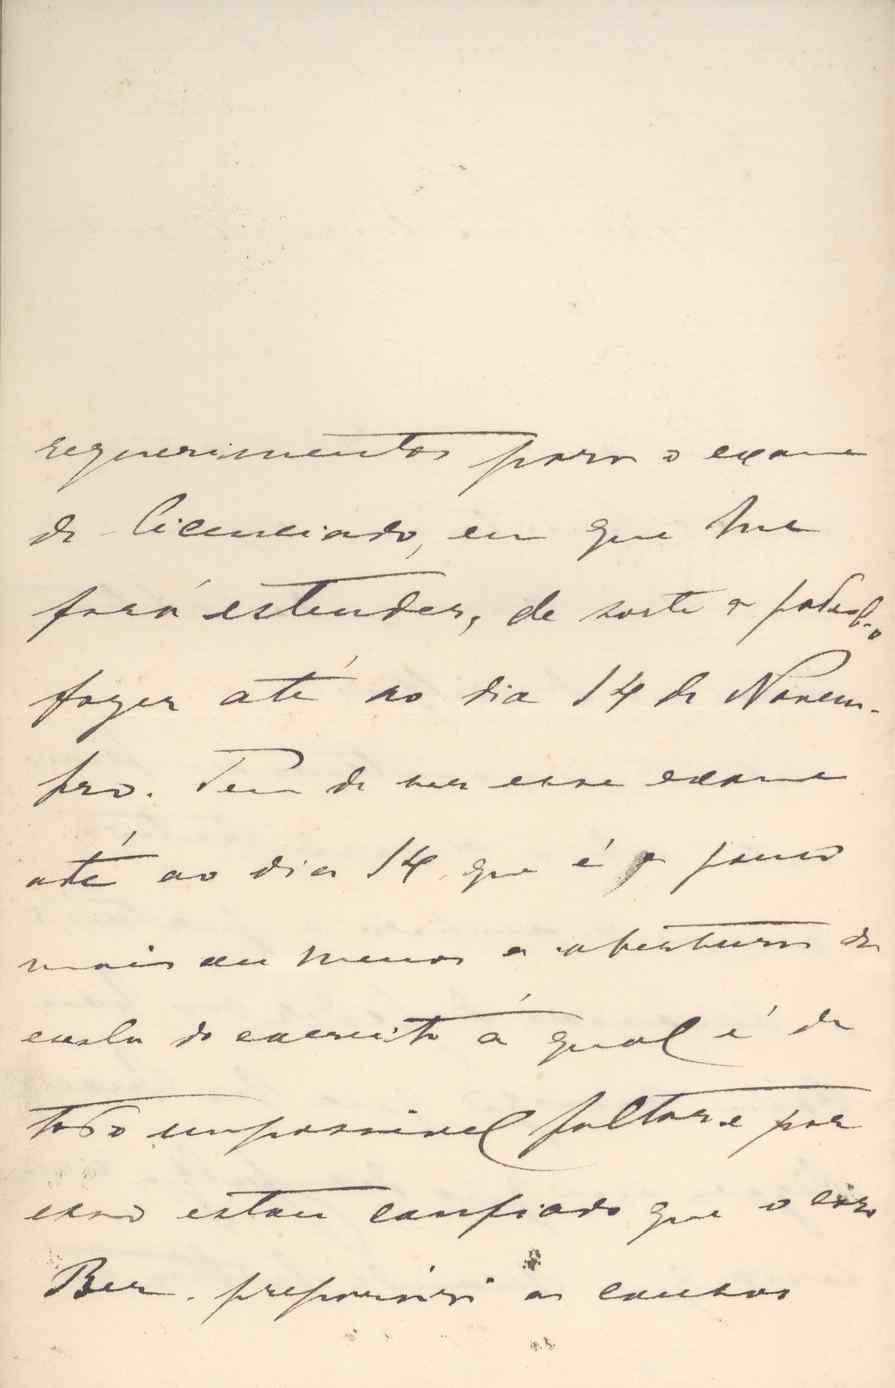 requerimentos para o exame
de licenciado, em que me
fará estender, de sorte a podel-o
fazer até ao dia 14 de Novem-
bro. Tem de ser esse exame
até ao dia 14, que é a pouco
mais ou menos a abertura da
escola do exercito á qual é de
todo impossivel faltar e por
isso estou confiado que o caro
Ber. preparará as cousas